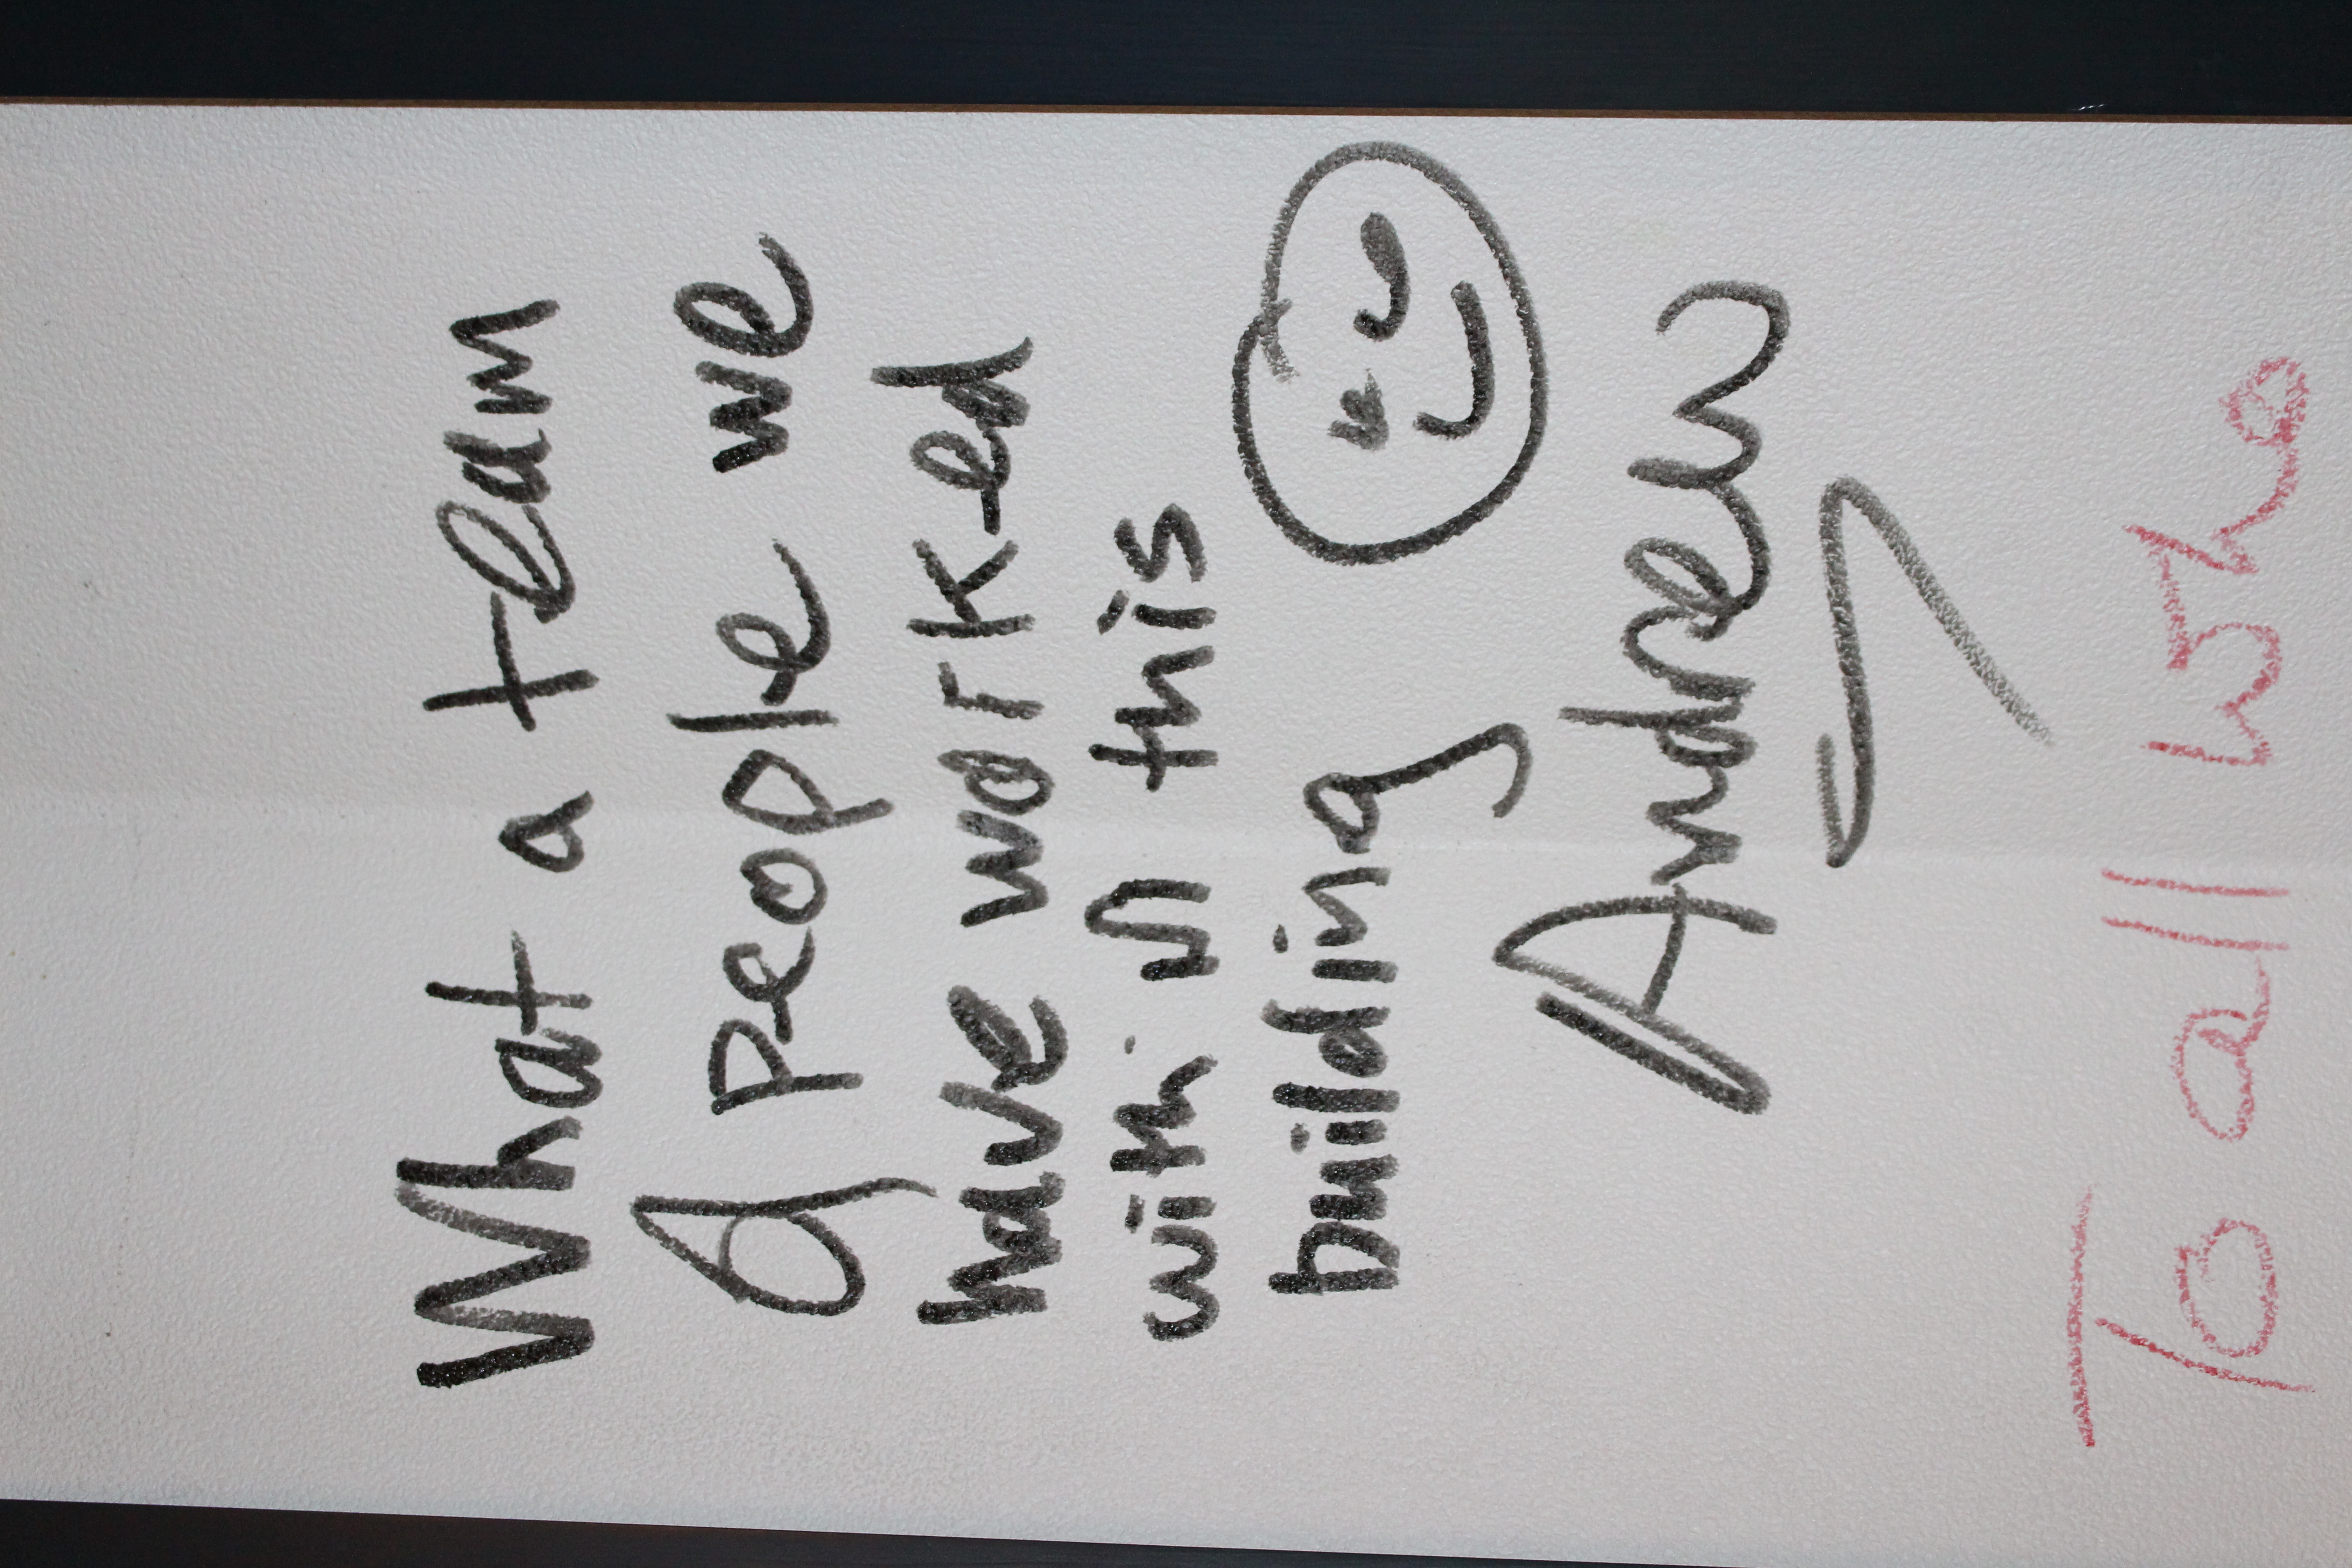 What a team
of people we
have worked
with in this
building
Andrew
To all who